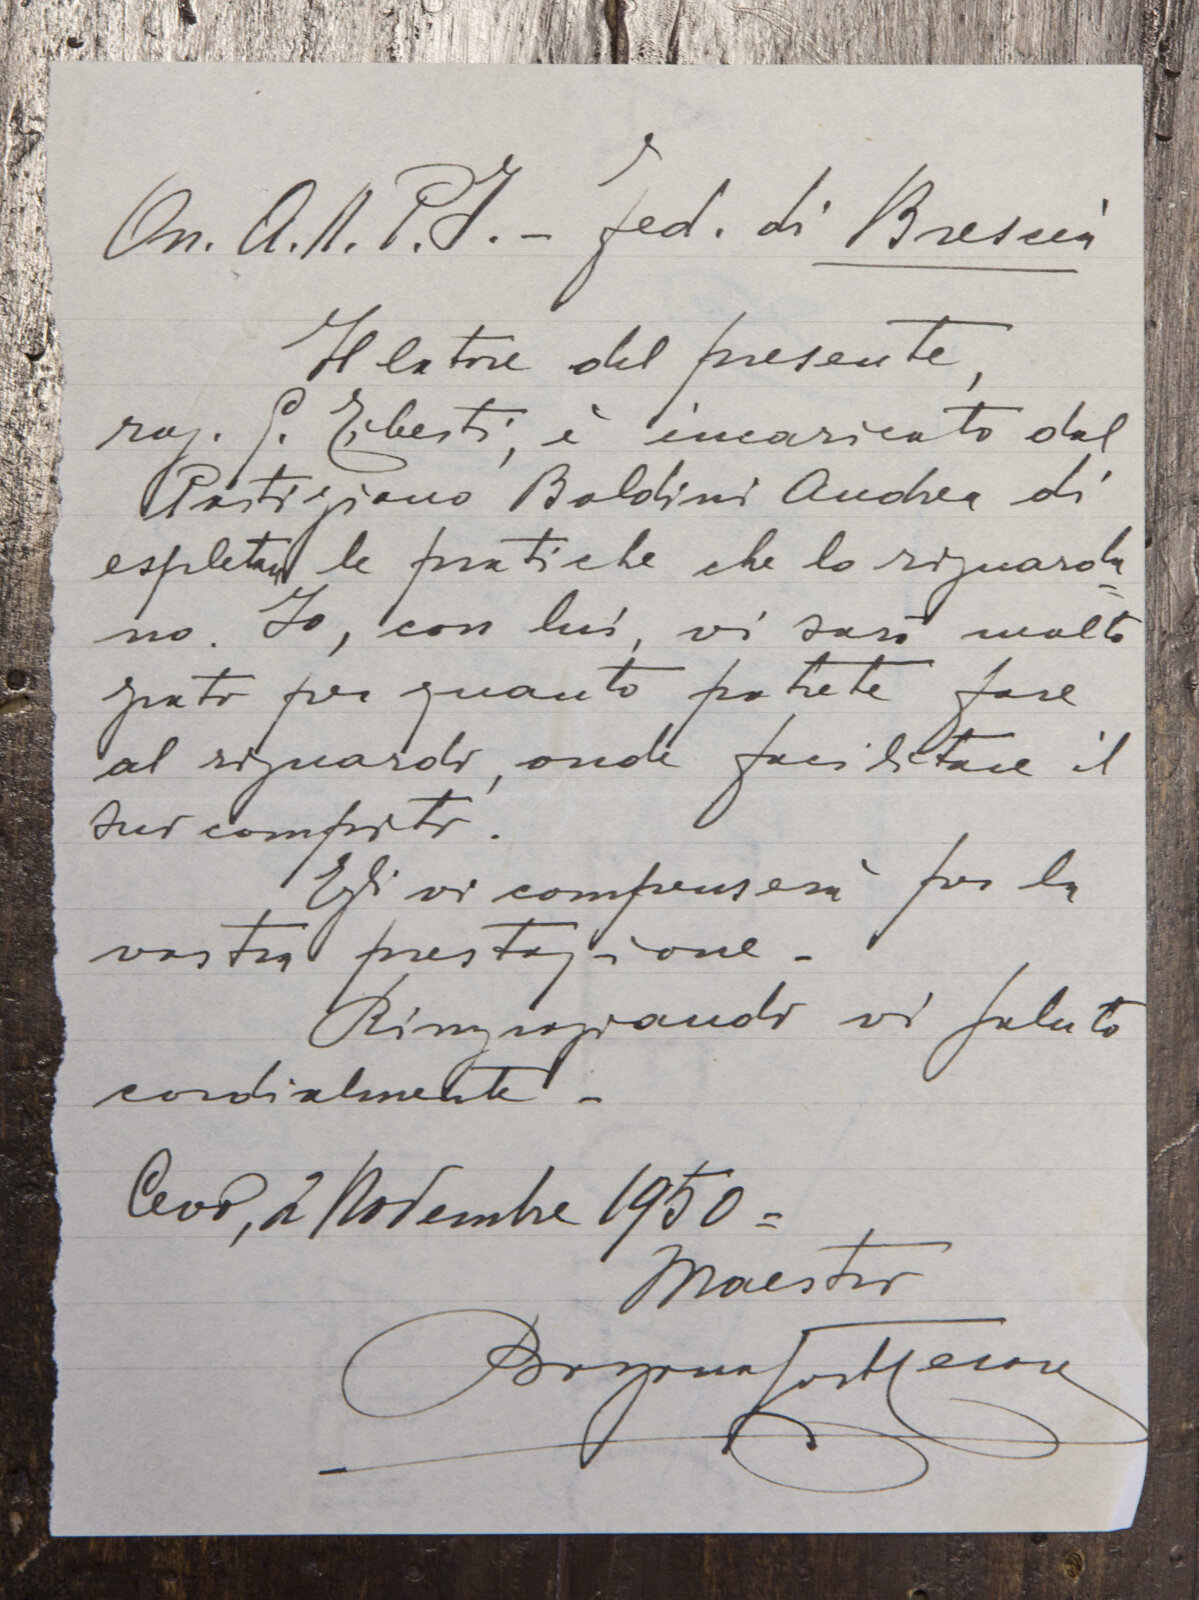 On. A.N.P.I. - Fed. di Brescia
Il latore del presente,
rag. G. Ziberti, è incaricato dal
Partigiano Boldini Andrea di
espletare le pratiche che lo riguarda=
no. Io, con lui, vi sarò molto
grato per quanto potrete fare
al riguardo, onde facilitare il
suo compito.
Egli vi compenserà per la
vostra prestazione -
Ringraziando vi saluto
cordialmente -
Cevo, 2 Novembre 1950 =
Maestro